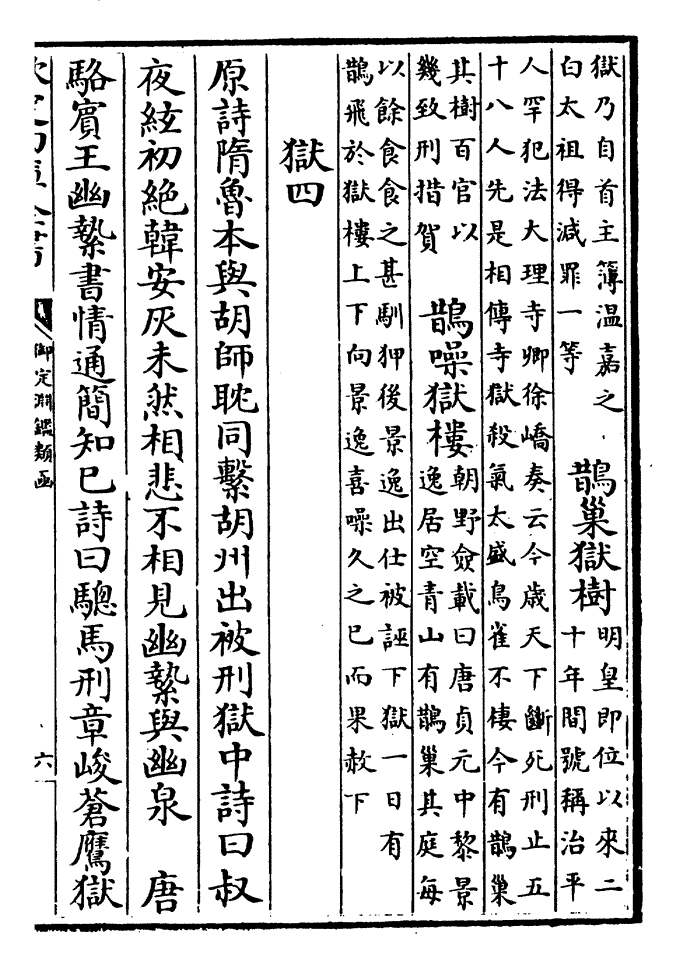 獄乃自首主簿溫嘉之
白太祖得減罪一等
鵲巢獄樹
明皇即位以來二
十年間號稱治平
人罕犯法大理寺卿徐嶠奏云今歲天下斷死刑止五
十八人先是相傳寺獄殺氣太盛鳥雀不棲今有鵲巢
其樹百官以
幾致刑措賀
鵲噪獄樓
朝野僉載曰唐貞元中黎景
逸居空青山有鵲巢其庭每
以餘食食之甚馴狎後景逸出仕被誣下獄一日有
鵲飛於獄樓上下向景逸喜噪久之已而果赦下
獄四
原詩隋魯本與胡師耽同繫胡州出被刑獄中詩曰叔
夜絃初絕韓安灰未然相悲不相見幽縶與幽泉 唐
駱賓王幽縶書情通簡知已詩曰驄馬刑章峻蒼鷹獄
御定淵鑑類函
六